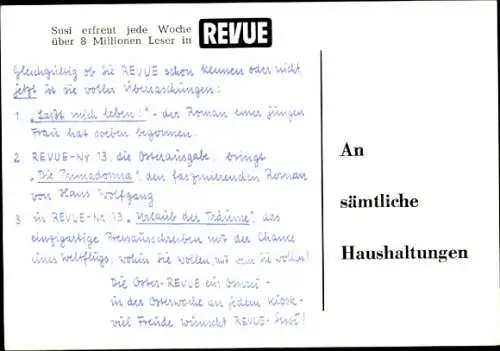 Susi erfreut jede Woche
über 8 Millionen Leser in REVUE
Gleichgültig ob Sie REVUE schon kennen oder nicht
jetzt ist sie voller Überraschungen:
1. „Laßt mich leben!" - der Roman einer jungen
Frau hat soeben begonnen.
2. REVUE-Nr 13, die Osterausgabe, bringt
„Die Primadonna", den faszinierenden Roman
von Hans Wolfgang
3. in REVUE-Nr 13 „Urlaub der Träume", das
einzigartige Preisausschreiben mit der Chance
eines Weltflugs, wohin Sie wollen, mit wem Sie wollen!
Die Oster-REVUE ein Osterei -
in der Osterwoche an jedem Kiosk -
viel Freude wünscht REVUE-Susi!
An
sämtliche
Haushaltungen